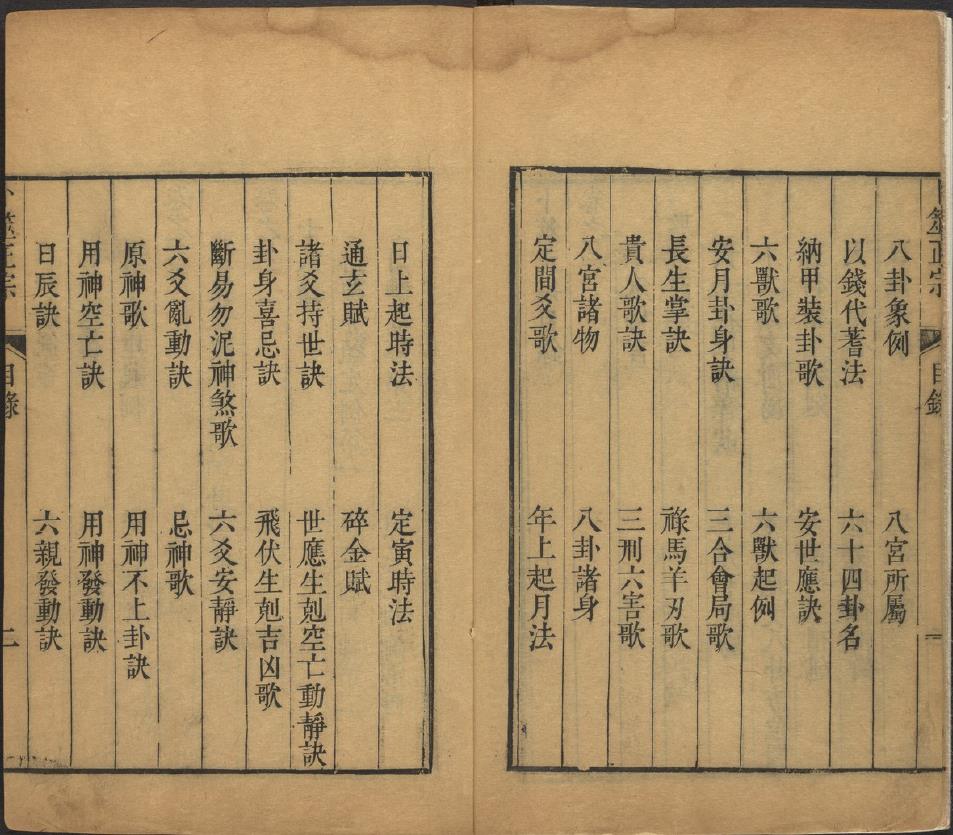 筮正宗 目錄 一
八卦象例 八宮所屬
以錢代蓍法 六十四卦名
納甲裝卦歌 安世應訣
六獸歌 六獸起例
安月卦身訣 三合會局歌
長生掌訣 祿馬羊刃歌
貴人歌訣 三刑六害歌
八宮諸物 八卦諸身
定間爻歌 年上起月法
日上起時法 定寅時法
通玄賦 碎金賦
諸爻持世訣 世應生剋空亡動靜訣
卦身喜忌訣 飛伏生剋吉凶歌
斷易勿泥神煞歌 六爻安靜訣
六爻亂動訣 忌神歌
原神歌 用神不上卦訣
用神空亡訣 用神發動訣
日辰訣 六親發動訣
筮正宗 目錄 二